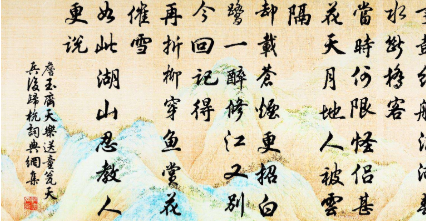 水斷橋客
當時何限怪侶甚
花天月地人被雲
隔
却載蒼煙更招白
鷺一醉修江又別
今回記得
再折柳穿魚賞花
催雪
如此湖山忍教人
更說
詹玉齊天樂送童瓮天
兵後歸杭詞典網集